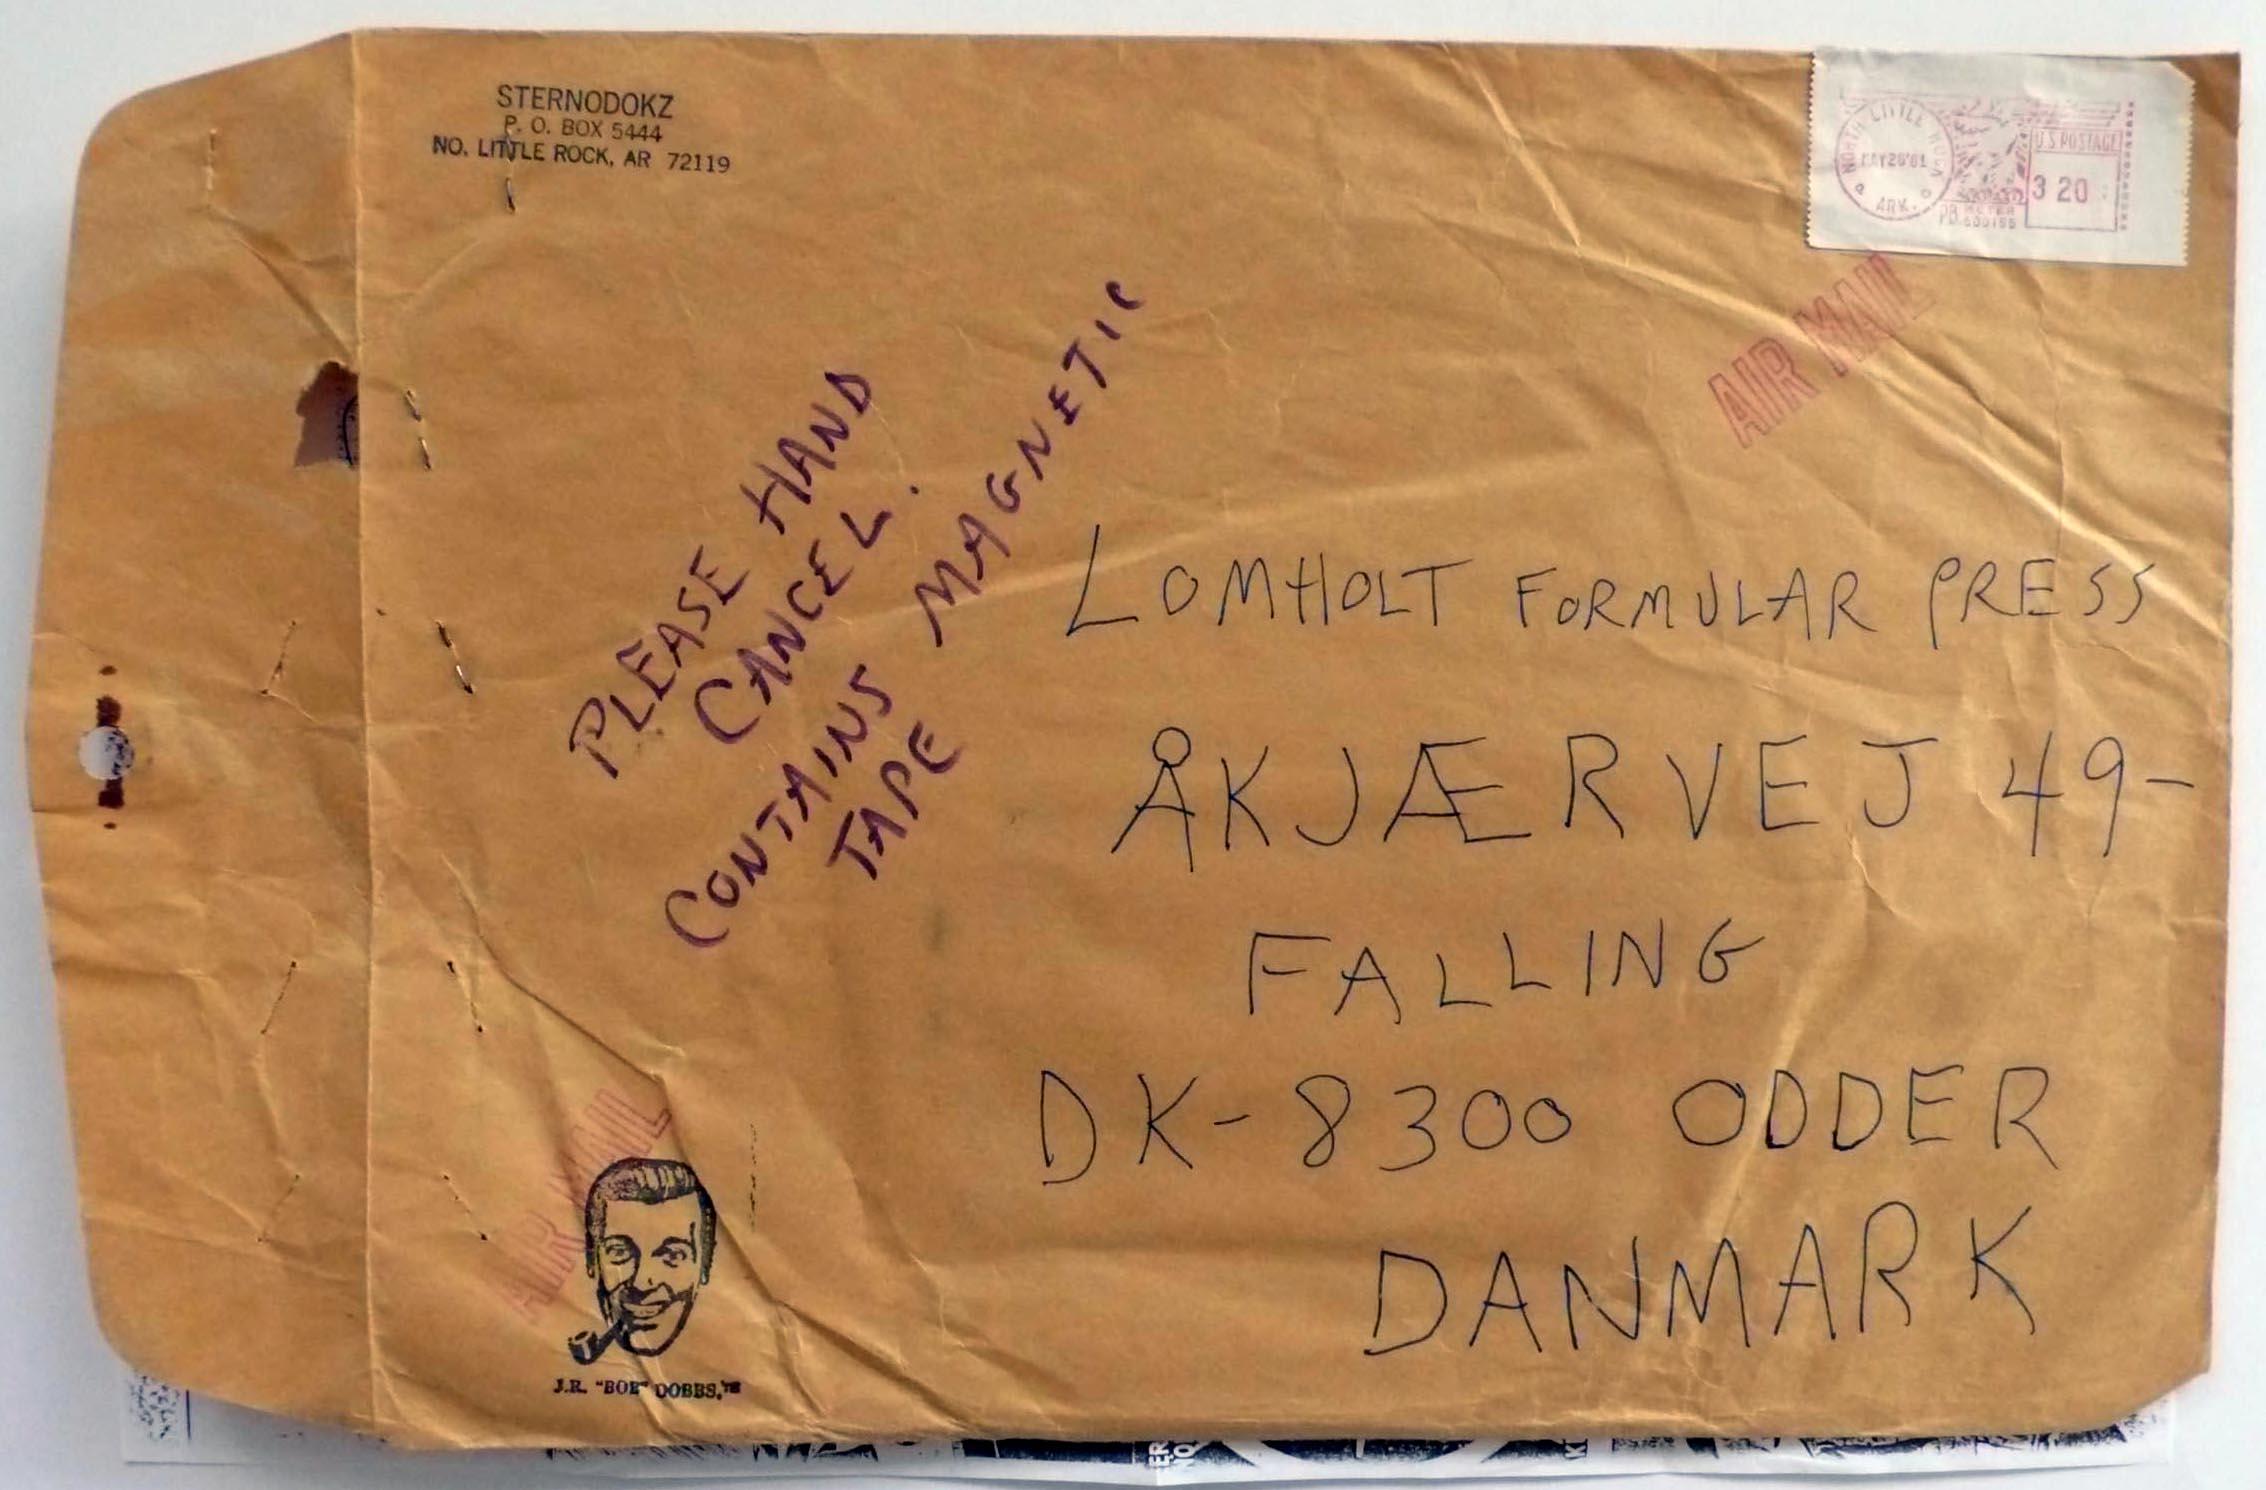 STERNODOKZ
P. O. BOX 5444
NO. LITTLE ROCK, AR 72119
NORTH LITTLE ROCK
MAY 26 '81
ARK.
U.S. POSTAGE
3 20
PB METER
AIR MAIL
PLEASE HAND
CANCEL.
CONTAINS MAGNETIC
TAPE
LOMHOLT FORMULAR PRESS
ÅKJÆRVEJ 49-
FALLING
DK-8300 ODDER
DANMARK
AIR MAIL
J.R. "BOB" DOBBS,